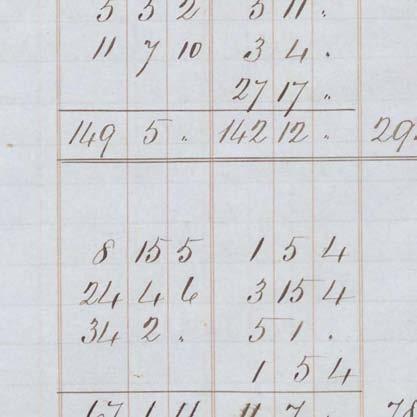 5 5 2 5 11 "
11 7 10 3 4 "
27 17 "
149 5 " 142 12 " 29
8 15 5 1 5 4
24 4 6 3 15 4
34 2 " 5 1 "
1 5 4
67 1 11 11 7 "